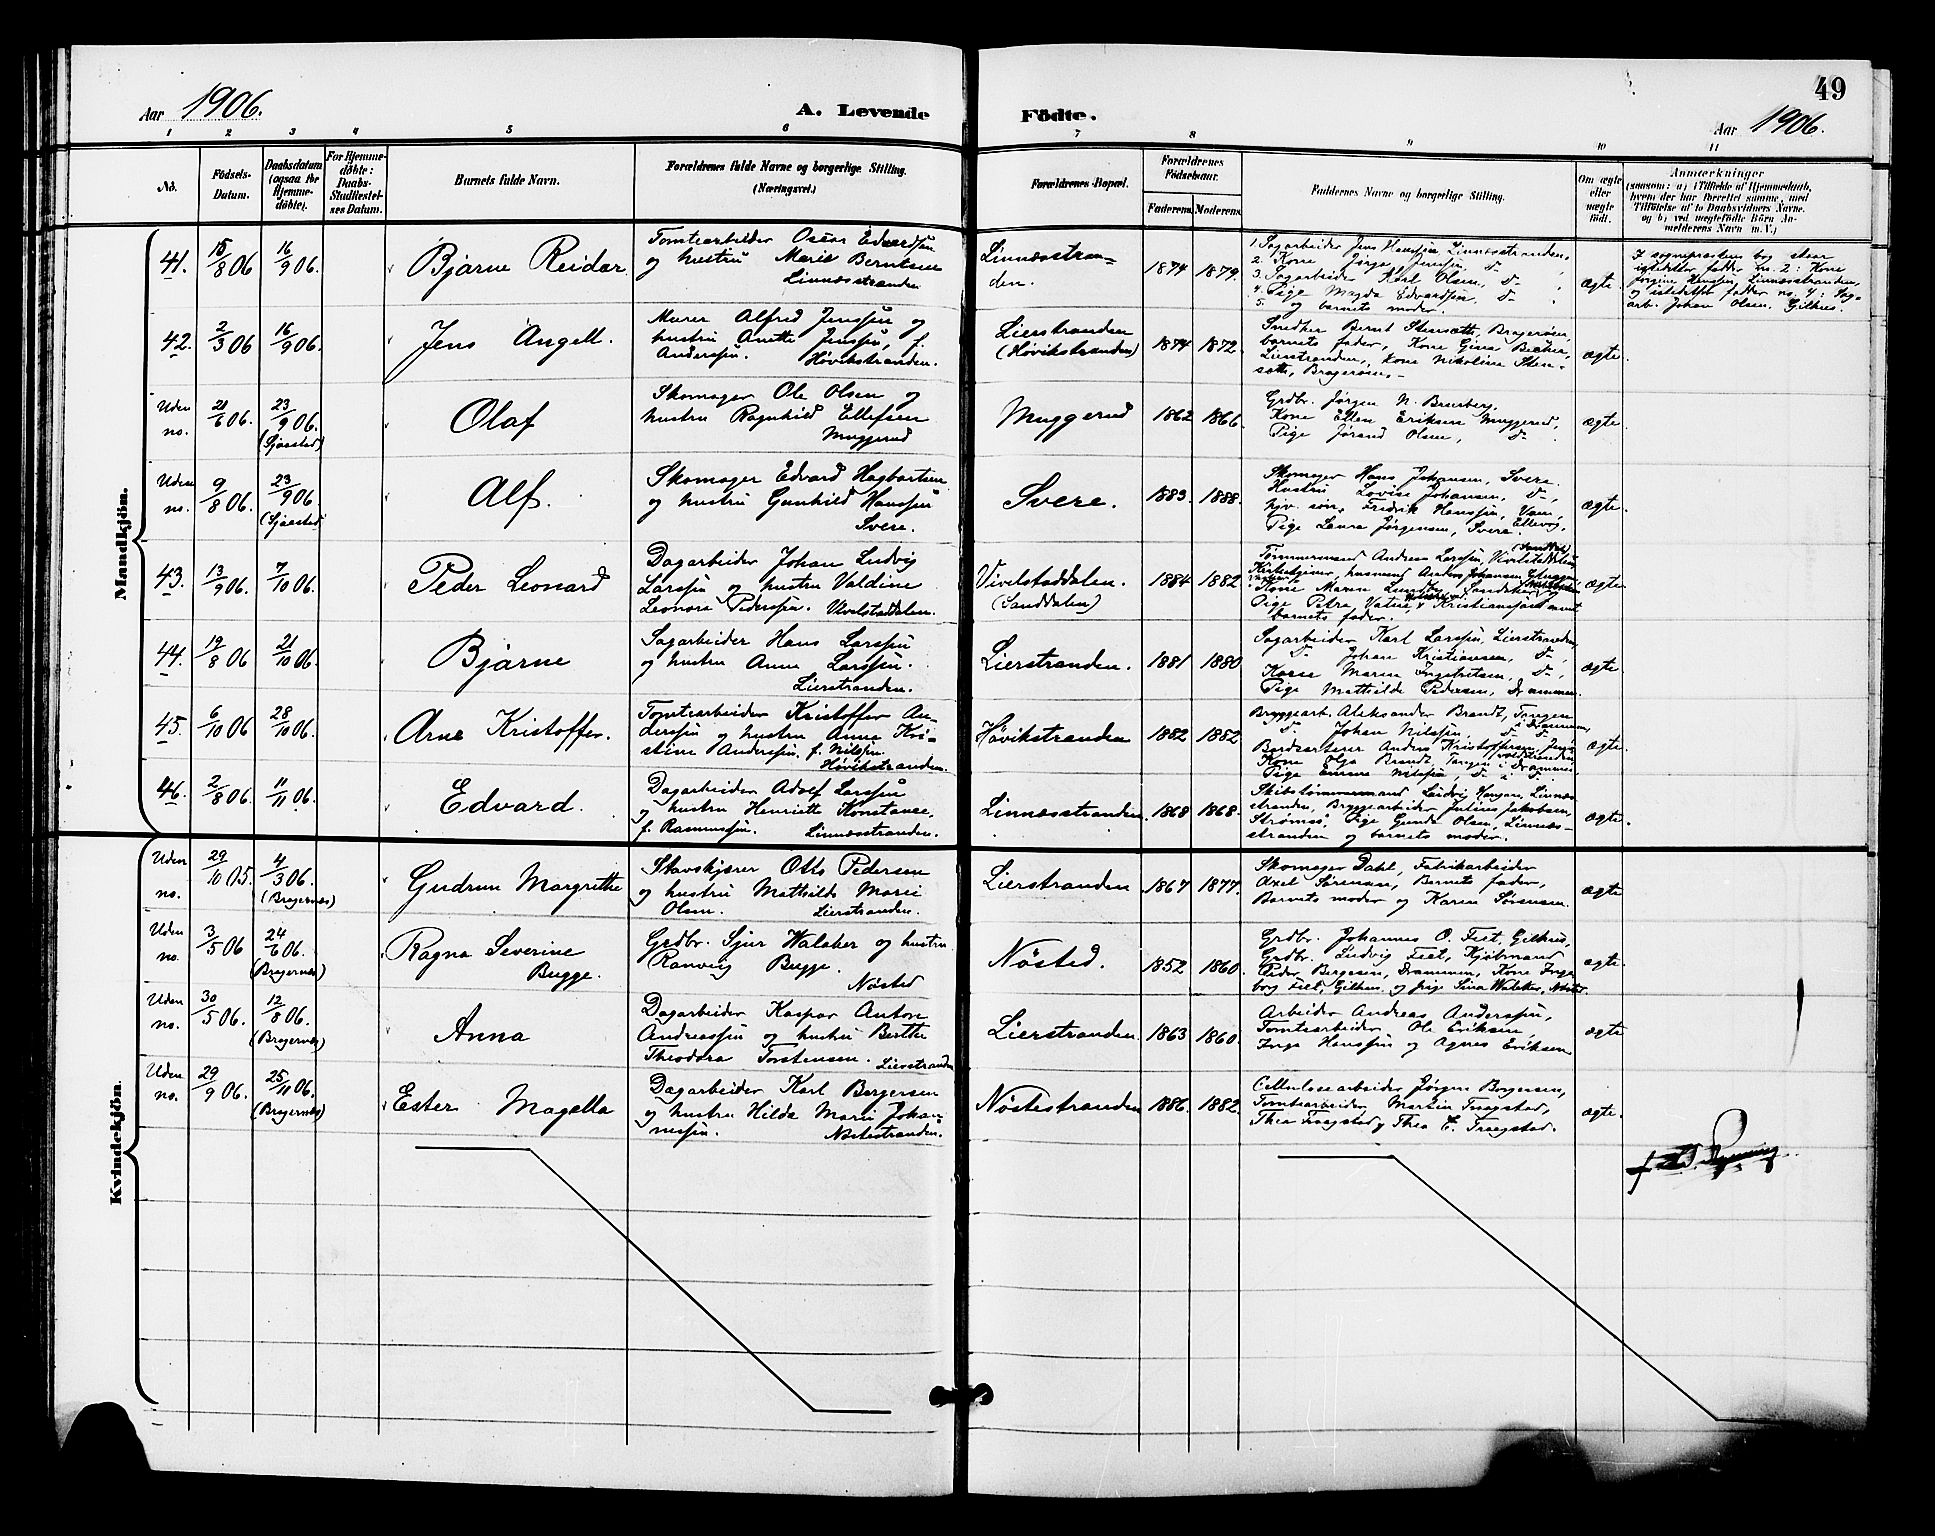 Aar 1906.
A. Levende Födte.
49
Aar 1906.
1 2 3 4 5 6 7 8 9 10 11
No.
Födsels-
Datum.
Daabsdatum
(ogsaa for
Hjemme-
döbte).
For Hjemme-
döbte:
Daabs-
Stadfæstel-
ses Datum.
Barnets fulde Navn.
Forældrenes fulde Navne og borgerlige Stilling.
(Næringsvei.)
Forældrenes Bopæl.
Forældrenes
Födselsaar.
Faderens. Moderens.
Faddernes Navne og borgerlige Stilling.
Om ægte
eller
uægte
födt.
Anmærkninger
(saasom: a) i Tilfælde af Hjemmedaab,
hvem der har forrettet samme, med
Tilföielse af to Daabsvidners Navne,
og b) ved uægtefödte Börn An-
melderens Navn m. V.)
Mandkjön.
41.
15/8 06
16/9 06.
Bjarne Reidar
Tomtearbeider Oscar Edvardsen
og hustru Marie Berntsen
Linnæsstranden
Linnæsstran-
den.
1874 1879.
1. Sagarbeider Jens Hanssen Linnæsstranden,
2. Kone Jørgine Jensen, do
3. Sagarbeider Karl Olsen, do
4. Pige Magda Edvardsen, do
5. og barnets moder.
ægte
I sogneprestens bog staar
istedetfor fadder nr. 2: Kone
Jørgine Hanssen, Linnæsstranden,
og istedetfor fadder no. 4: Sag-
arb. Johan Olsen, Gilhus.
42.
2/3 06
16/9 06.
Jens Angell.
Murer Alfred Jenssen og
hustru Anette Jenssen, f.
Anderssen. Høvikstranden.
Lierstranden
(Høvikstranden)
1874 1872.
Snedker Bernt Stensætt, Bragerøen,
barnets fader, Kone Gina Becher,
Lierstranden, kone Nikoline Sten-
sætt, Bragerøen.
ægte.
Uden
no.
21/6 06.
23/9 06.
(Sjaastad)
Olaf
Skomager Ole Olsen og
hustru Ragnhild Ellefsen
Muggerud
Muggerud
1862 1866.
Grdbr. Jørgen N. Bruberg,
Kone Ellen Eriksen Muggerud,
Pige Jørand Olsen, do
ægte.
Uden
no.
9/8 06.
23/9 06
(Sjaastad)
Alf.
Skomager Edvard Hagbartsen
og hustru Gunhild Hanssen
Svere.
Svere.
1883. 1888.
Skomager Hans Johansen, Svere.
Hustru Lovise Johansen, do,
Fredrik Hanssen,
Pige Laura Jørgensen, Svere.
ægte.
43.
13/9 06.
7/10 06.
Peder Leonard
Dagarbeider Johan Ludvig
Larssen og hustru Valdine
Leonore Pederssen. Vivelstaddalen.
Vivelstaddalen.
(Sanddalen)
1884 1882
Tømmermand Andreas Larssen,
Pige Petra
barnets fader.
ægte
44.
19/8 06
21/10 06.
Bjarne
Sagarbeider Hans Larssen
og hustru Anna Larssen.
Lierstranden.
Lierstranden.
1881 1880
Sagarbeider Karl Larssen, Lierstranden,
do Johan Kristiansen, do,
Kone Maren Ingebretsen, do,
Pige Mathilde Pedersen, Drammen.
ægte
45.
6/10 06
28/10 06.
Arne Kristoffer.
Tomtearbeider Kristoffer An-
derssen og hustru Anna Kri-
stine Anderssen, f. Nilssen.
Høvikstranden.
Høvikstranden
1882 1882
Bryggearb. Aleksander Brandt, Tangen
i Drammen,
do Johan Nilssen, do do
Kone Olga Brandt, Tangen i Drammen
Pige Emma Nilssen, do i do.
ægte.
46.
2/8 06.
11/11 06.
Edvard.
Dagarbeider Adolf Larssen
og hustru Henriette Konstanse,
f. Rasmussen. Linnæsstranden.
Linnæsstranden
1868 1868.
Skibstømmermand Ludvig Hansen, Linnæs-
stranden, Bryggearbeider Julius Jakobsen,
Strømsø, Pige Gunda Olsen, Linnæs-
stranden og barnets moder.
ægte.
Kvindekjön.
Uden
no.
29/10 05.
4/3 06.
(Bragernæs)
Gudrun Margrethe
Stavskjærer Otto Pedersen
og hustru Mathilde Marie
Olsen. Lierstranden.
Lierstranden
1867 1877.
Skomager Dahl, Fabrikarbeider
Axel Sørensen, Barnets fader,
Barnets moder og Karen Sørensen.
ægte
Uden
no.
3/5 06
24/6 06.
(Bragernæs)
Ragna Severine
Bugge.
Grdbr. Sjur Walaker og hustru
Ranveig Bugge.
Nøsted
Nøsted.
1852 1860.
Grdbr. Johannes O. Fiet, Gilhus,
Grdbr. Ludvig Fiet, Kjøbmand
Peder Bergesen, Drammen, Kone Inge-
borg Fiet, Gilhus og pige Sina Walaker, Nøsted.
ægte.
Uden
no.
30/5 06.
12/8 06.
(Bragernæs)
Anna
Dagarbeider Kaspar Anton
Andreassen og hustru Berthe
Theodora Torstensen. Lierstranden
Lierstranden
1863 1860.
Arbeider Andreas Anderssen,
Tomtearbeider Ole Eriksen,
Inga Hanssen og Agnes Eriksen
ægte
Uden
no.
29/9 06.
25/11 06.
(Bragernæs)
Ester Magella
Dagarbeider Karl Borgersen
og hustru Hilda Marie Johan-
nessen. Nøstestranden.
Nøstestranden
1886. 1882.
Cellulosearbeider Jørgen Borgersen,
Tomtearbeider Martin Traagstad,
Thea Traagstad, Thea C. Traagstad.
ægte.